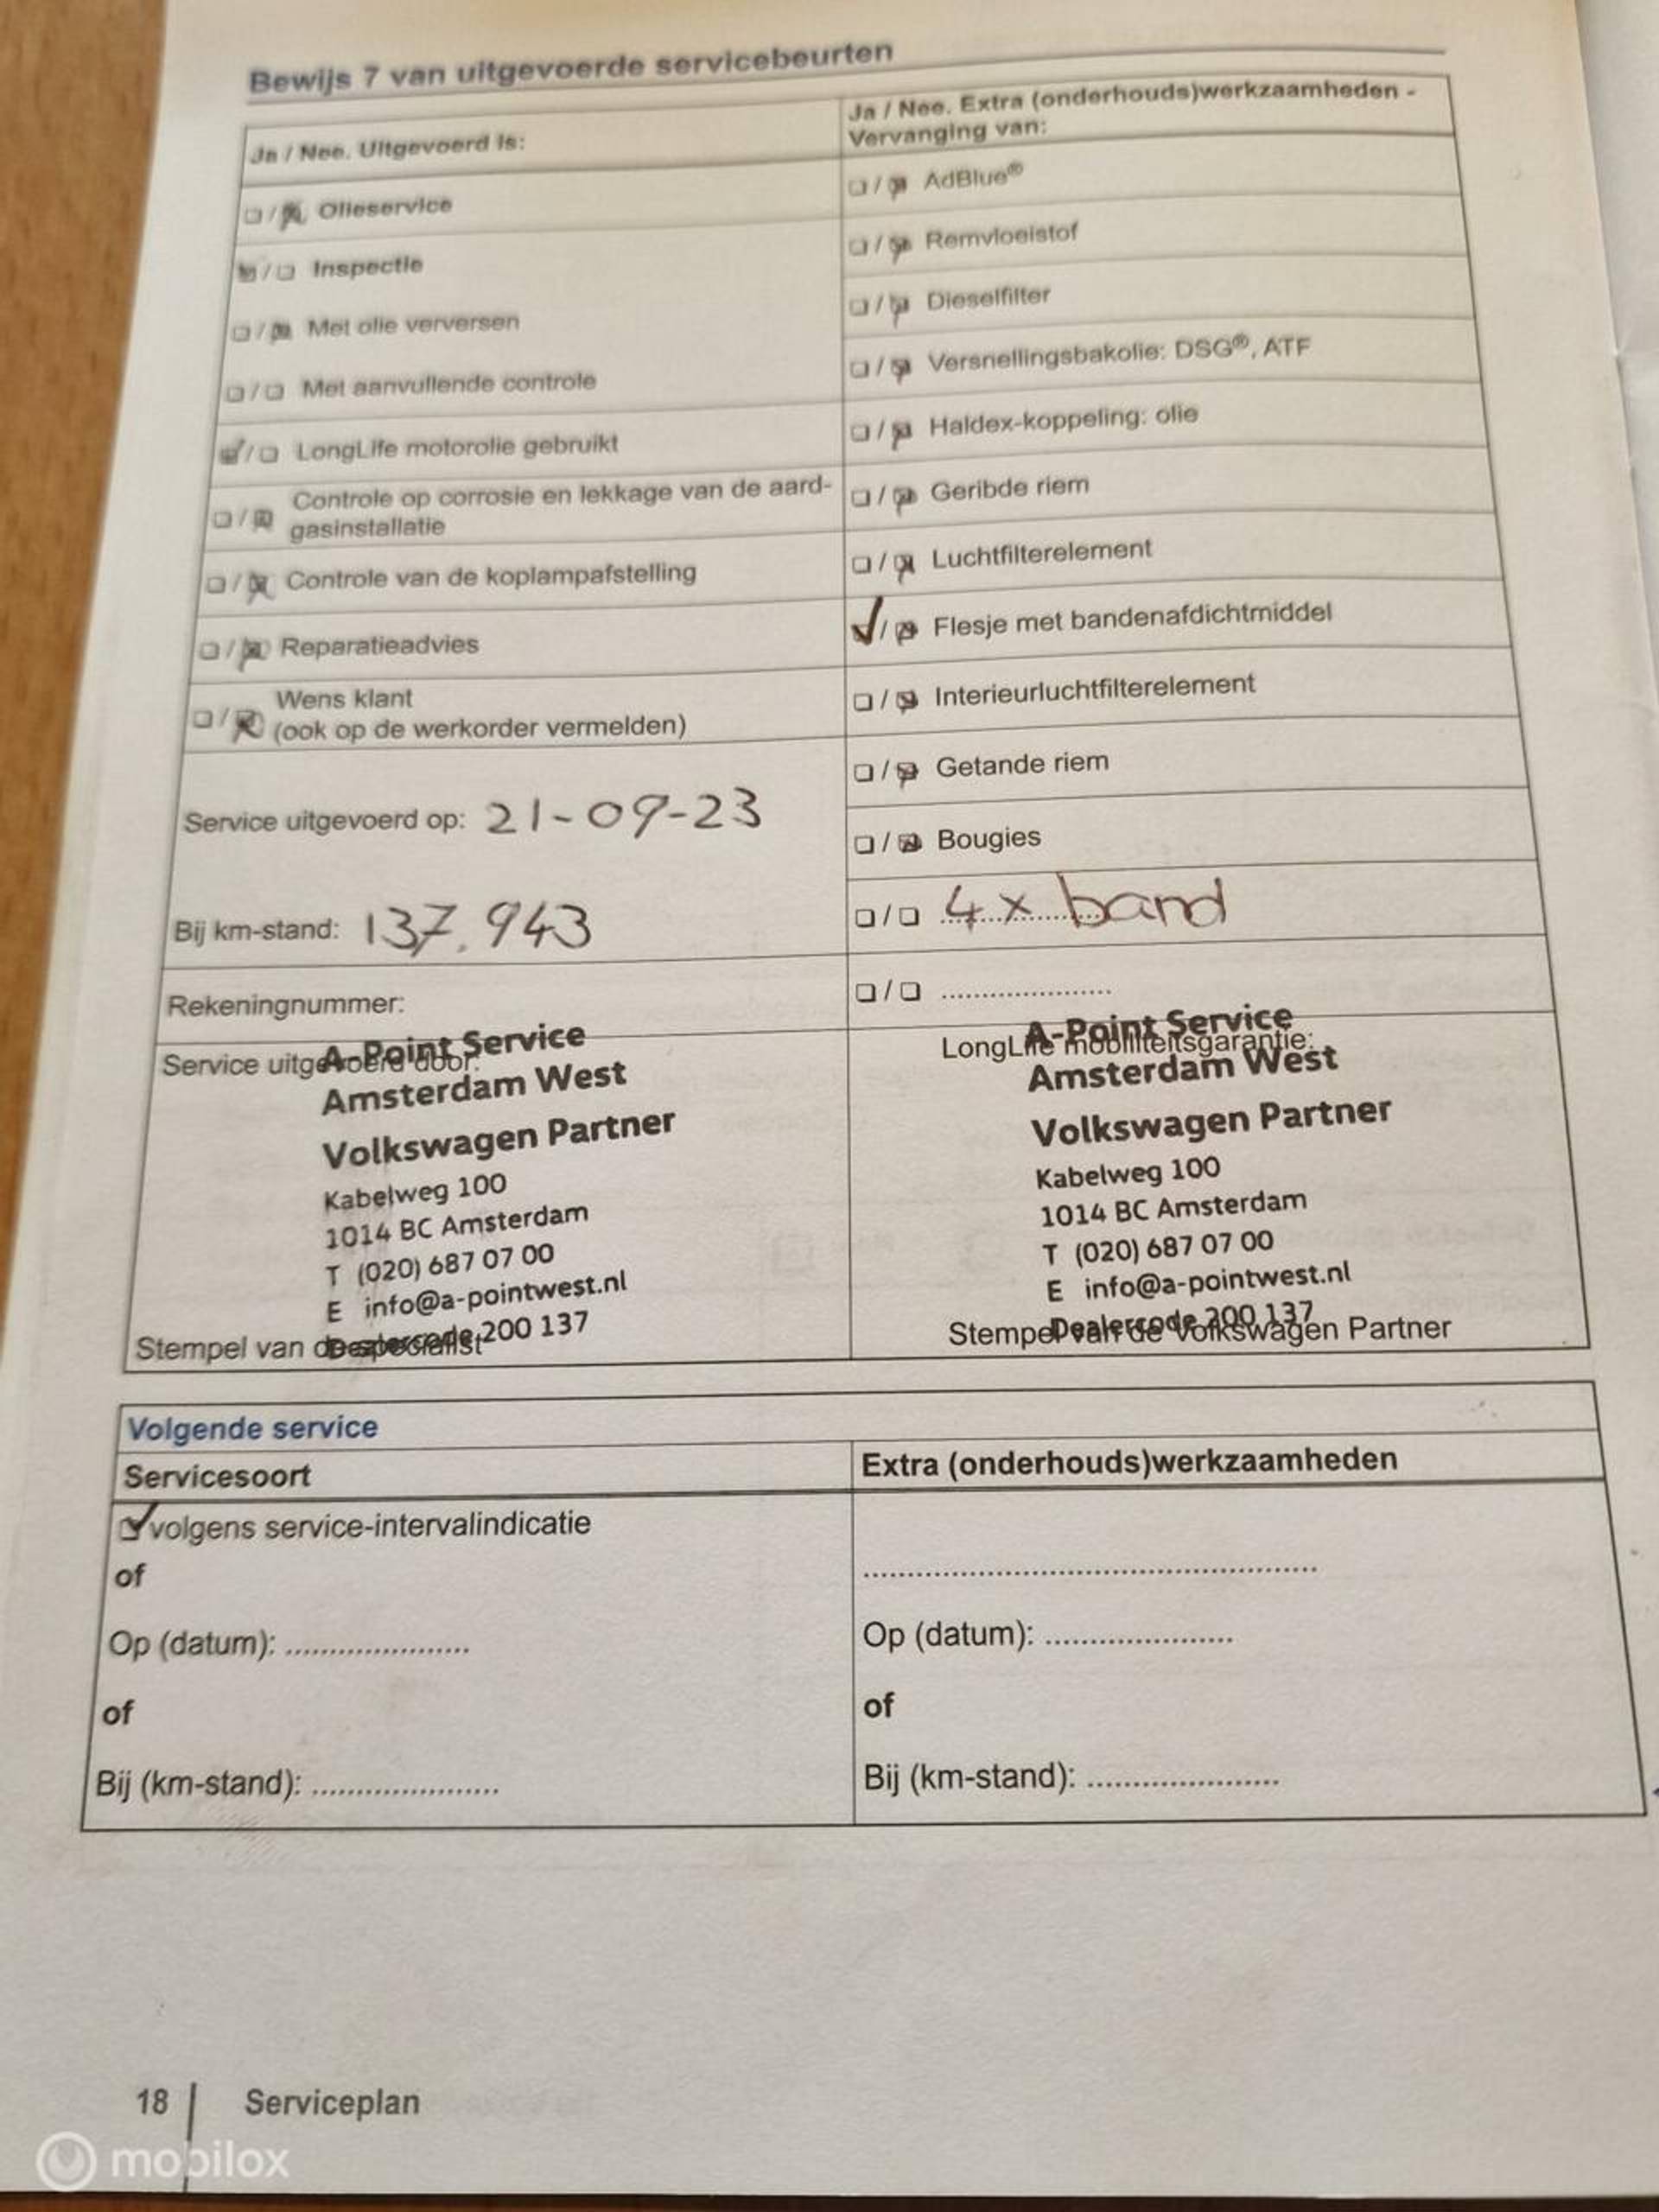 Bewijs 7 van uitgevoerde servicebeurten
Ja / Nee. Uitgevoerd is:
Olieservice
Inspectie
Met olie verversen
Met aanvullende controle
LongLife motorolie gebruikt
Controle op corrosie en lekkage van de aard-
gasinstallatie
Controle van de koplampafstelling
Reparatieadvies
Wens klant
(ook op de werkorder vermelden)
Service uitgevoerd op: 21-09-23
Bij km-stand: 137.943
Rekeningnummer:
Service uitgevoerd door:
A-Point Service
Amsterdam West
Volkswagen Partner
Kabelweg 100
1014 BC Amsterdam
T (020) 687 07 00
E info@a-pointwest.nl
Dealercode 200 137
Stempel van de specialist
Ja / Nee. Extra (onderhouds)werkzaamheden -
Vervanging van:
AdBlue®
Remvloeistof
Dieselfilter
Versnellingsbakolie: DSG®, ATF
Haldex-koppeling: olie
Geribde riem
Luchtfilterelement
Flesje met bandenafdichtmiddel
Interieurluchtfilterelement
Getande riem
Bougies
4x band
LongLife mobiliteitsgarantie:
A-Point Service
Amsterdam West
Volkswagen Partner
Kabelweg 100
1014 BC Amsterdam
T (020) 687 07 00
E info@a-pointwest.nl
Dealercode 200 137
Stempel van de Volkswagen Partner
Volgende service
Servicesoort
volgens service-intervalindicatie
of
Op (datum): .....................
of
Bij (km-stand): .....................
Extra (onderhouds)werkzaamheden
Op (datum): .....................
of
Bij (km-stand): .....................
18 | Serviceplan
mobilox